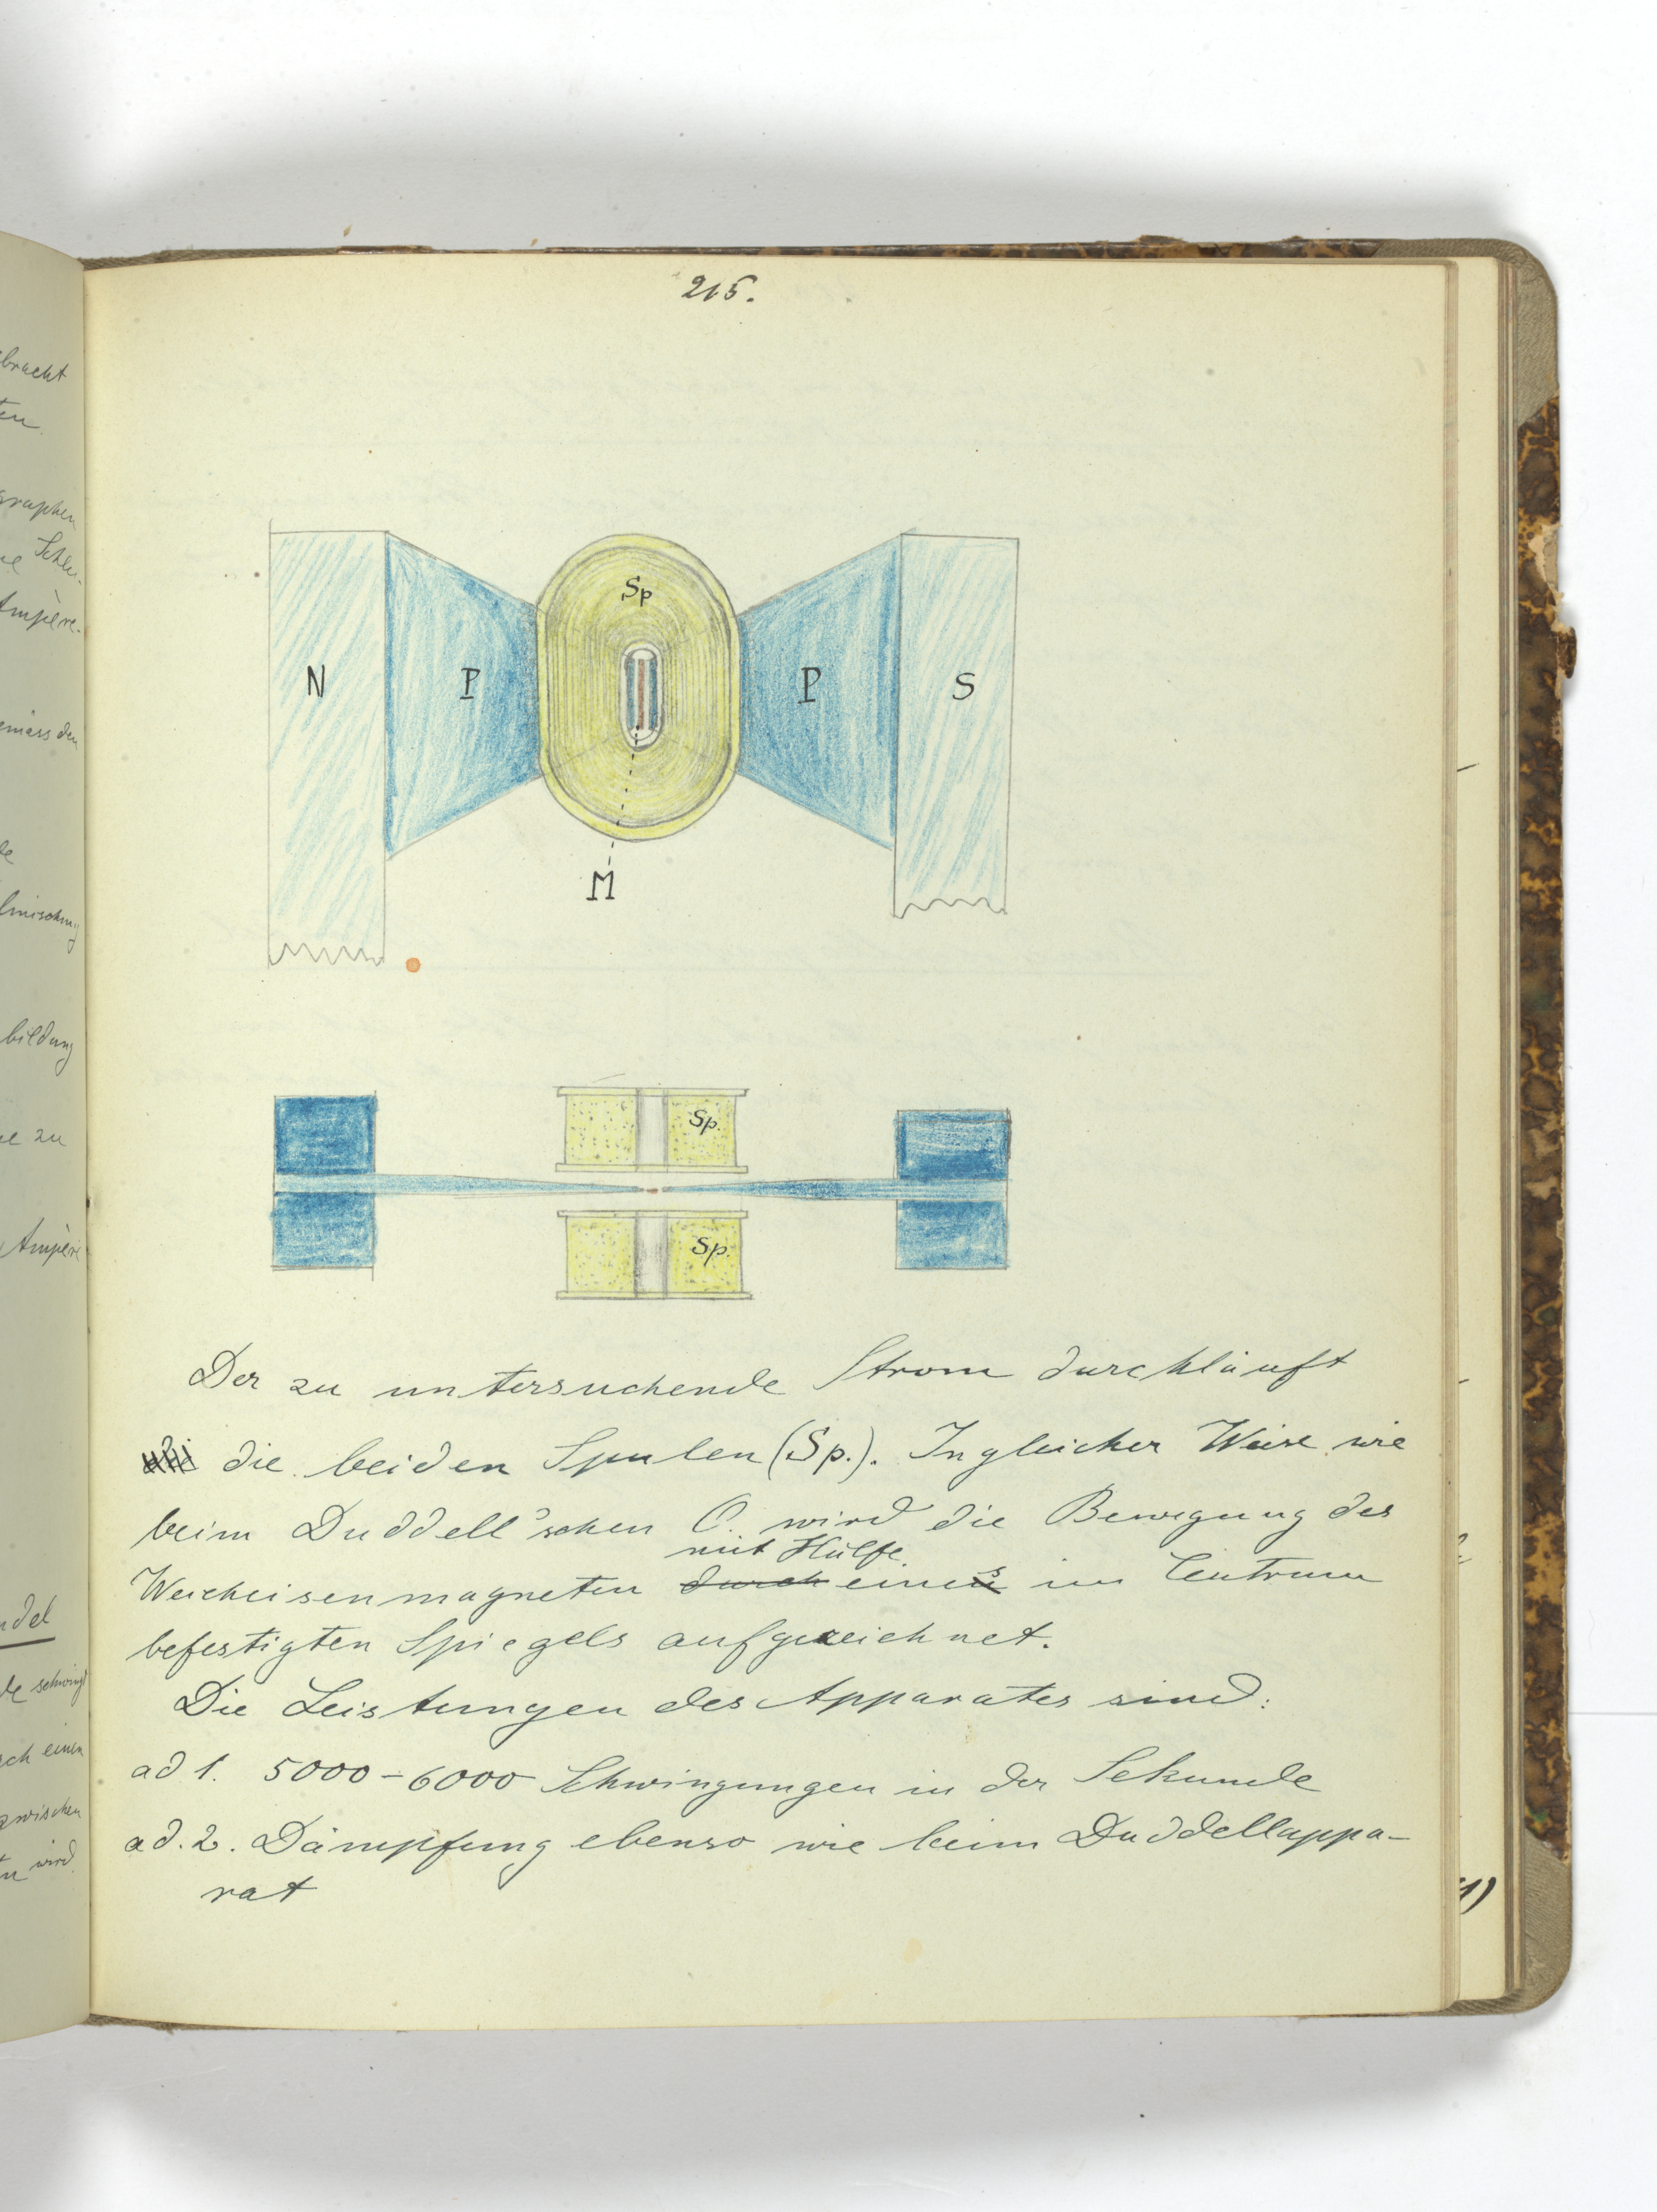 215.
Sp
N P P S
M
Sp.
Sp.
Der zu untersuchende Strom durchläuft
die beiden Spulen (Sp.). In gleicher Weise wie
beim Duddell'schen O. wird die Bewegung des
mit Hülfe
Weicheisenmagneten durch eines im Centrum
befestigten Spiegels aufgezeichnet.
Die Leistungen des Apparates sind:
ad 1. 5000-6000 Schwingungen in der Sekunde
ad. 2. Dämpfung ebenso wie beim Duddellappa-
rat
bracht
graphen
Schlei-
Ampère-
bildung
zu
Ampère
schwingt
einen
zwischen
wird